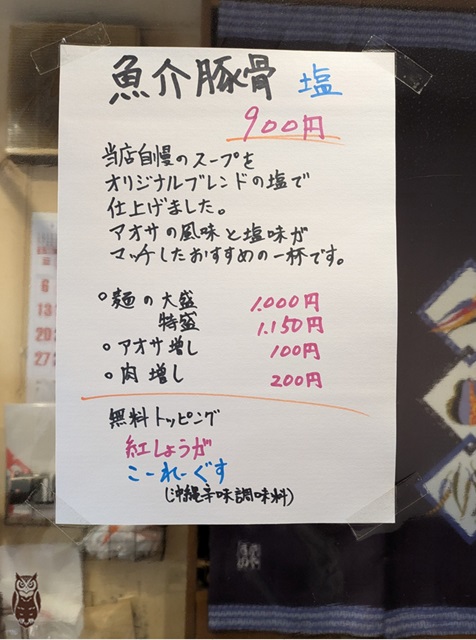 魚介豚骨 塩
900円
当店自慢のスープを
オリジナルブレンドの塩で
仕上げました。
アオサの風味と塩味が
マッチしたおすすめの一杯です。
○麺の大盛 1.000円
特盛 1.150円
○アオサ増し 100円
○肉増し 200円
無料トッピング
紅しょうが
こーれーぐす
(沖縄辛味調味料)
6
13
20
27